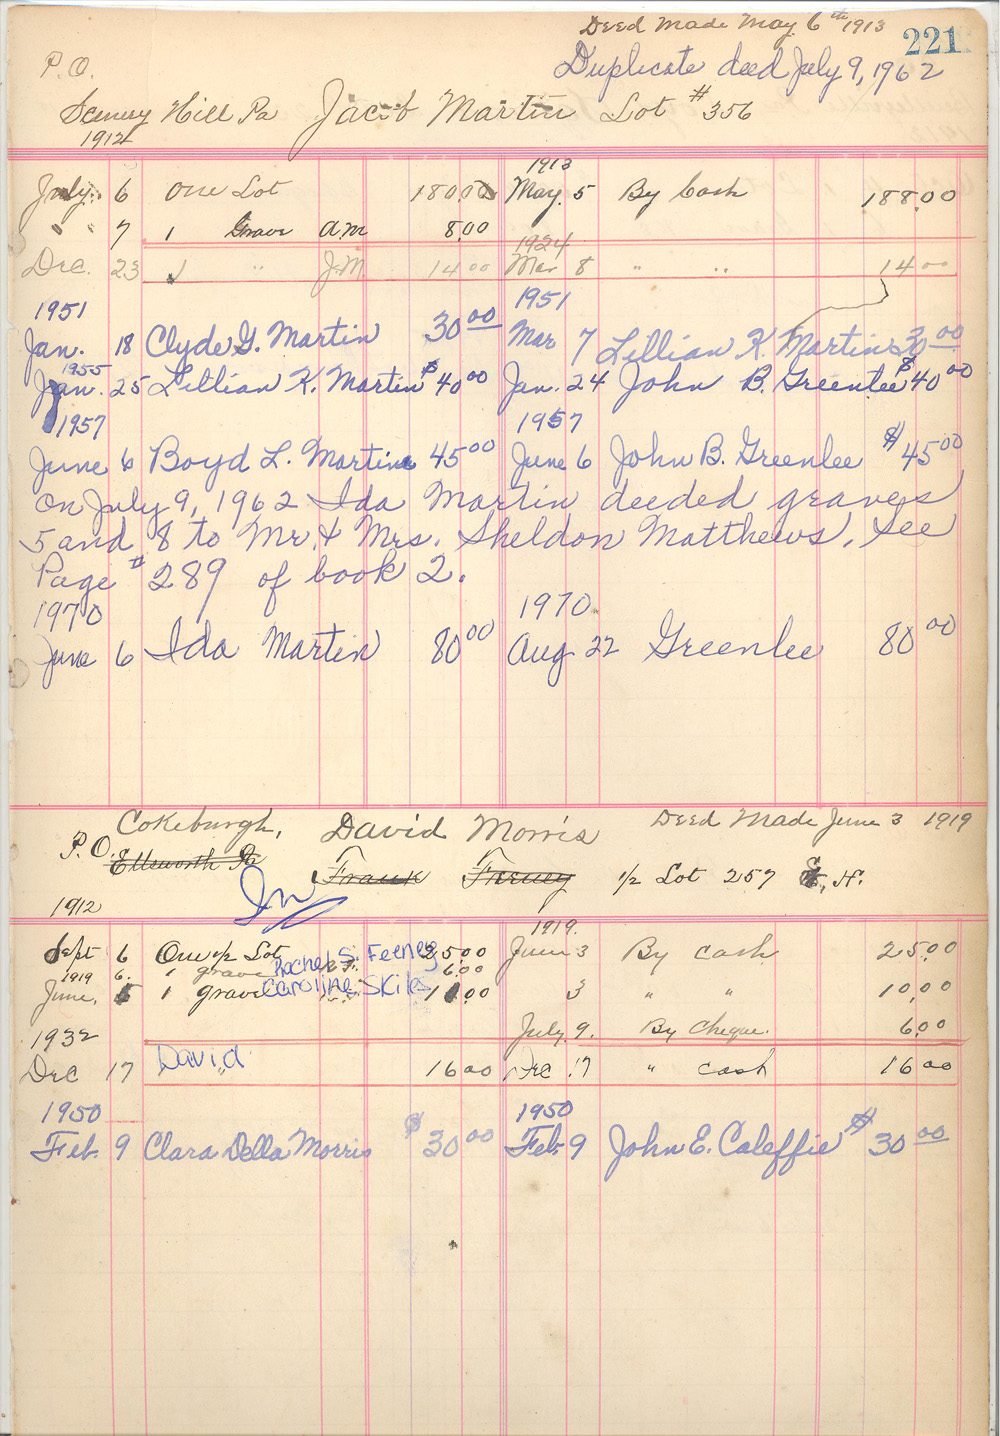 Deed Made May 6th 1913
221
Duplicate deed July 9, 1962
P.O.
Scenery Hill Pa Jacob Martin Lot #356
1912
1913
July 6 One Lot 180.00 May 5 By Cash 188.00
" 7 1 Grave A.M 8.00
1924
Dec. 23 1 " J.M. 14 00 Mar 8 " " 14 00
1951 1951
Jan. 18 Clyde G. Martin 30 00 Mar 7 Lillian K. Martin $30 00
1955
Jan. 25 Lillian K. Martin $40 00 Jan. 24 John B. Greenlee $40 00
1957 1957
June 6 Boyd L. Martin 45 00 June 6 John B. Greenlee $45 00
on July 9, 1962 Ida Martin deeded graves
5 and 8 to Mr. & Mrs. Sheldon Matthews. See
Page #289 of book 2.
1970 1970
June 6 Ida Martin 80 00 Aug 22 Greenlee 80 00
Cokeburgh, David Morris Deed Made June 3 1919
P.O. Ellsworth Pa
Frank Feeney 1/2 Lot 257 N.
1912
1919.
Sept 6 One 1/2 Lot 25.00 June 3 By cash 25.00
1919 6. 1 grave Rachel S. Feeney 6.00
June, 5 1 grave Caroline Skiles 10.00 3 " " 10.00
1932 July 9. By Cheque. 6.00
Dec 17 David 16 00 Dec 17 " cash 16 00
1950 1950
Feb. 9 Clara Della Morris $30 00 Feb. 9 John E. Caleffie $30 00